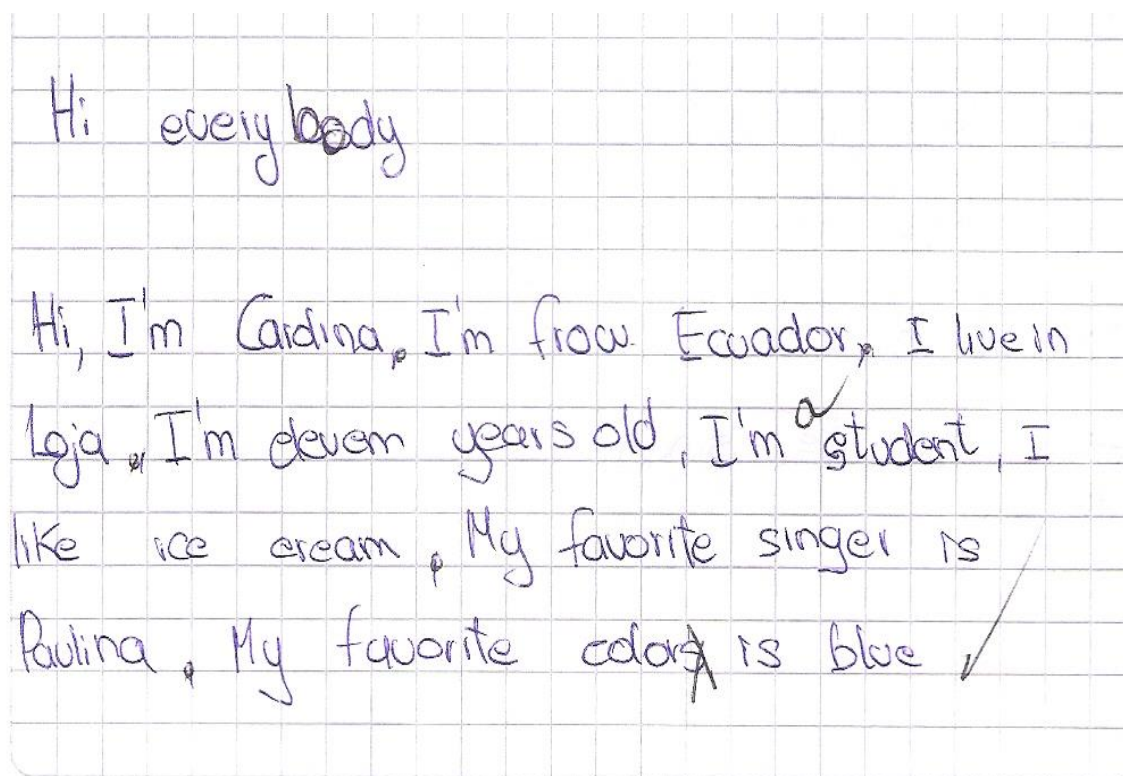 Hi everybody
Hi, I'm Carolina, I'm from Ecuador, I live in
Loja, I'm eleven years old, I'm a student, I
like ice cream, My favorite singer is
Paulina, My favorite color is blue,